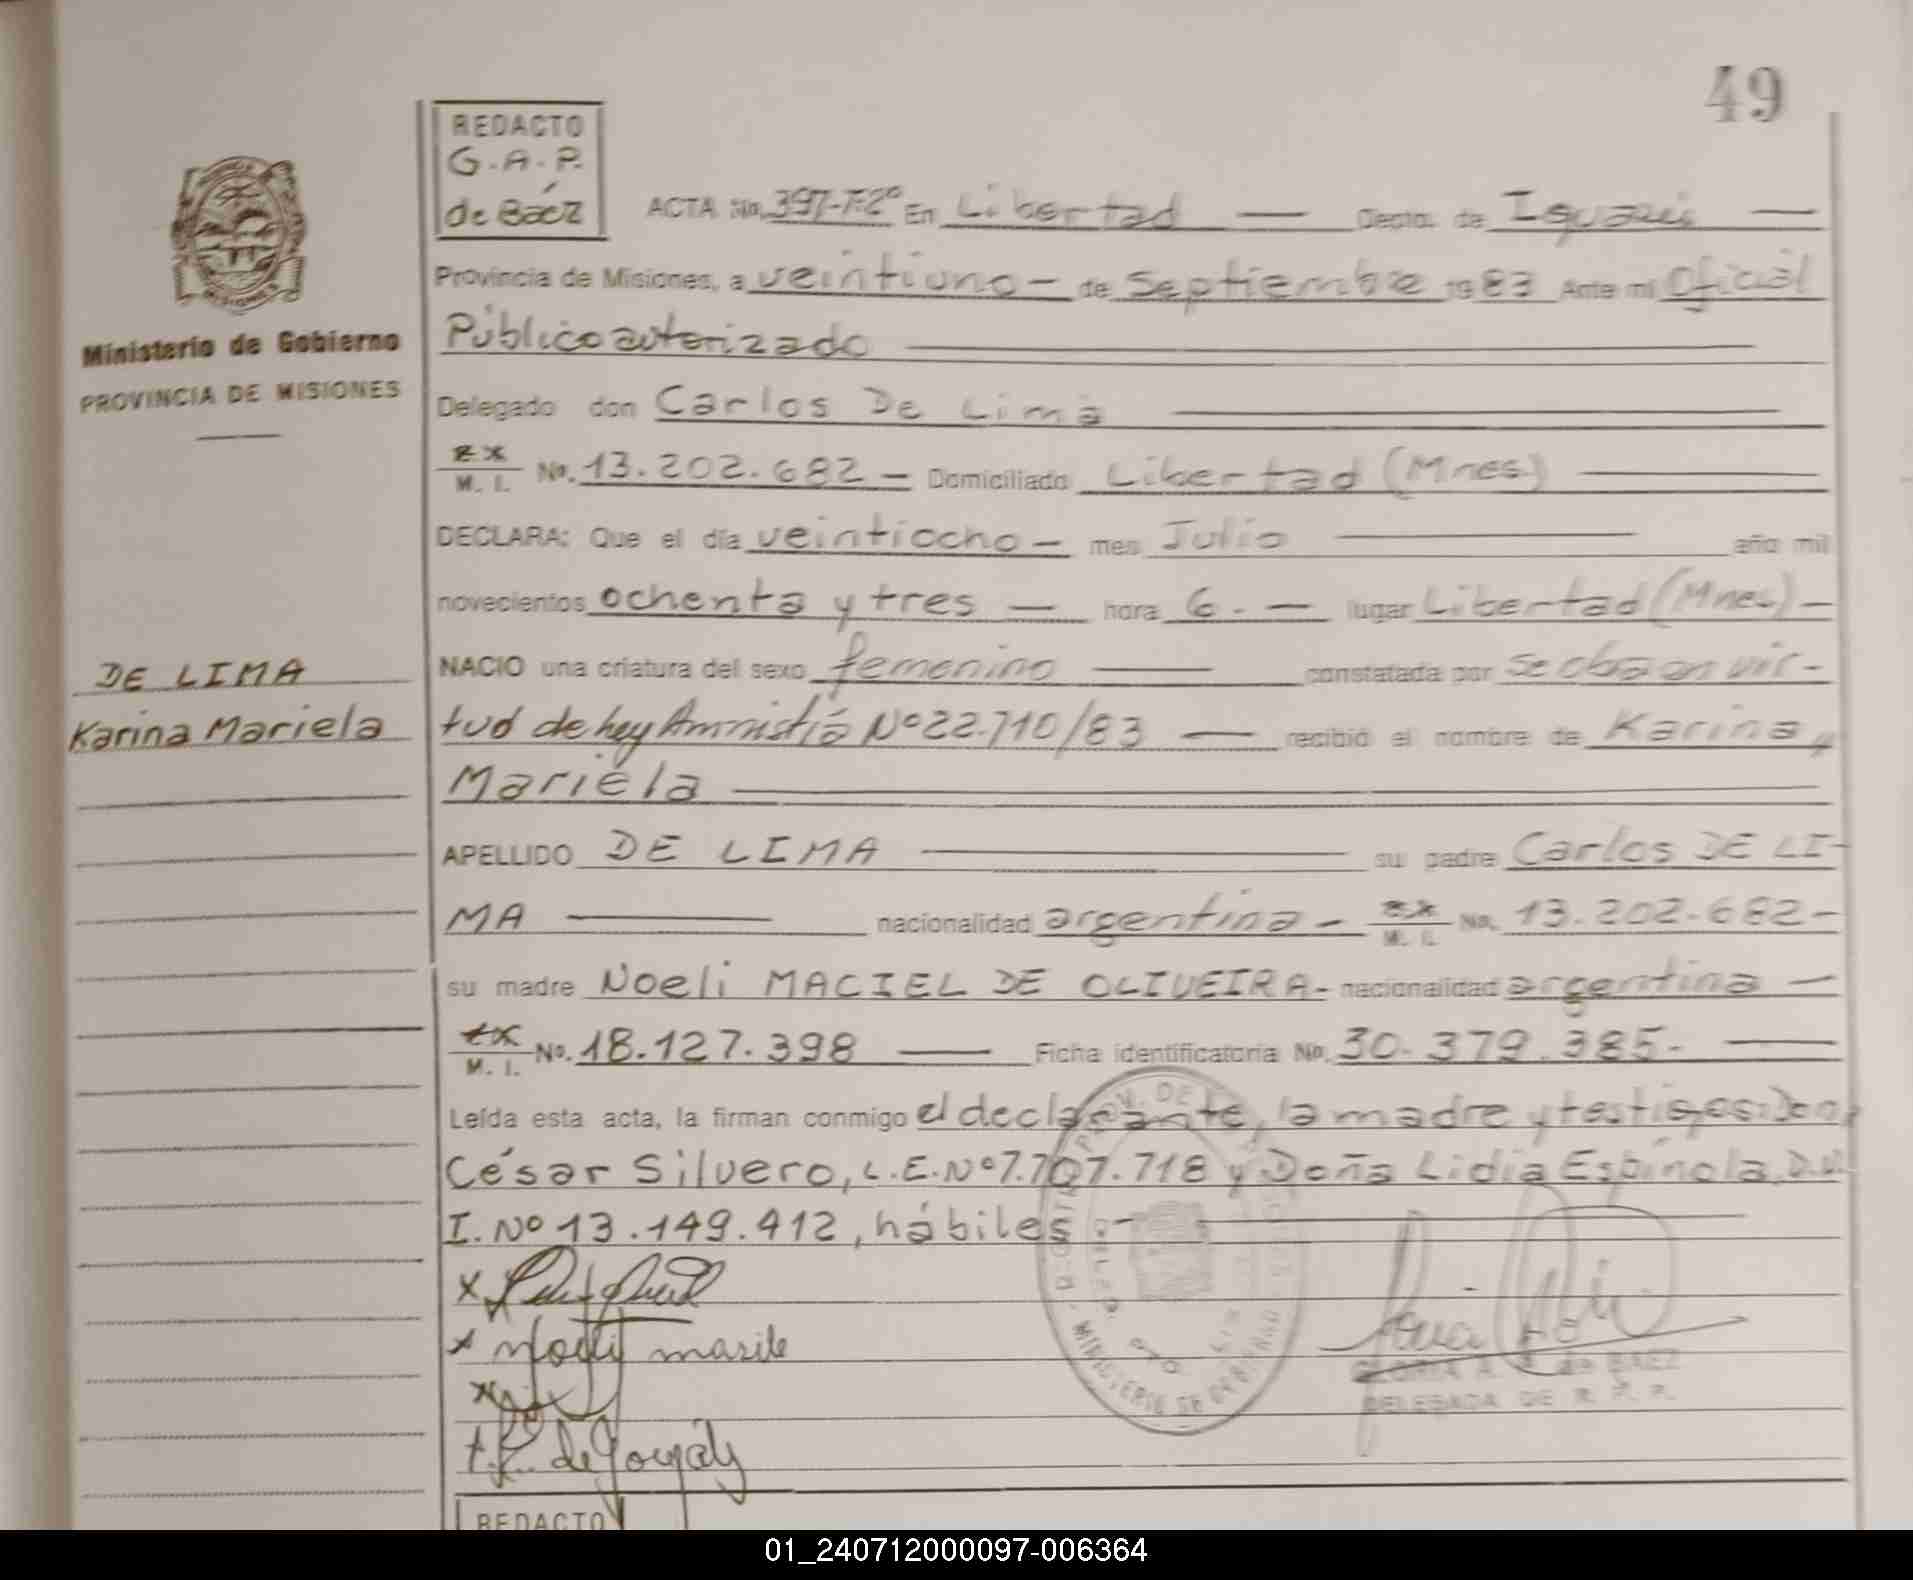 49
REDACTO
G.A.P.
de Báez
ACTA No. 397-T2º En Libertad — Depto. de Iguazú —
Provincia de Misiones, a veintiuno — de Septiembre 1983 Ante mi Oficial
Público autorizado
Ministerio de Gobierno
PROVINCIA DE MISIONES
Delegado don Carlos De Lima
M. I. No. 13.202.682 — Domiciliado Libertad (Mnes.)
DECLARA: Que el día veintiocho — mes Julio — año mil
novecientos ochenta y tres — hora 6. — lugar Libertad (Mnes) —
DE LIMA
Karina Mariela
NACIO una criatura del sexo femenino — constatada por se obra en vir-
tud de ley Amnistía Nº 22.710/83 — recibió el nombre de Karina,
Mariela
APELLIDO DE LIMA — su padre Carlos DE LI-
MA — nacionalidad argentina — M. I. No. 13.202.682 —
su madre Noeli MACIEL DE OLIVEIRA - nacionalidad argentina —
M. I. No. 18.127.398 — Ficha identificatoria No. 30.379.385. —
Leída esta acta, la firman conmigo el declarante, la madre y testigos: Don
César Silvero, L.E. Nº 7.707.718 y Doña Lidia Espínola, D.N.
I. Nº 13.149.412, hábiles. —
GLORIA A. P. de BAEZ
DELEGADA DE R. P. P.
MINISTERIO DE GOBIERNO
REDACTO
01_240712000097-006364